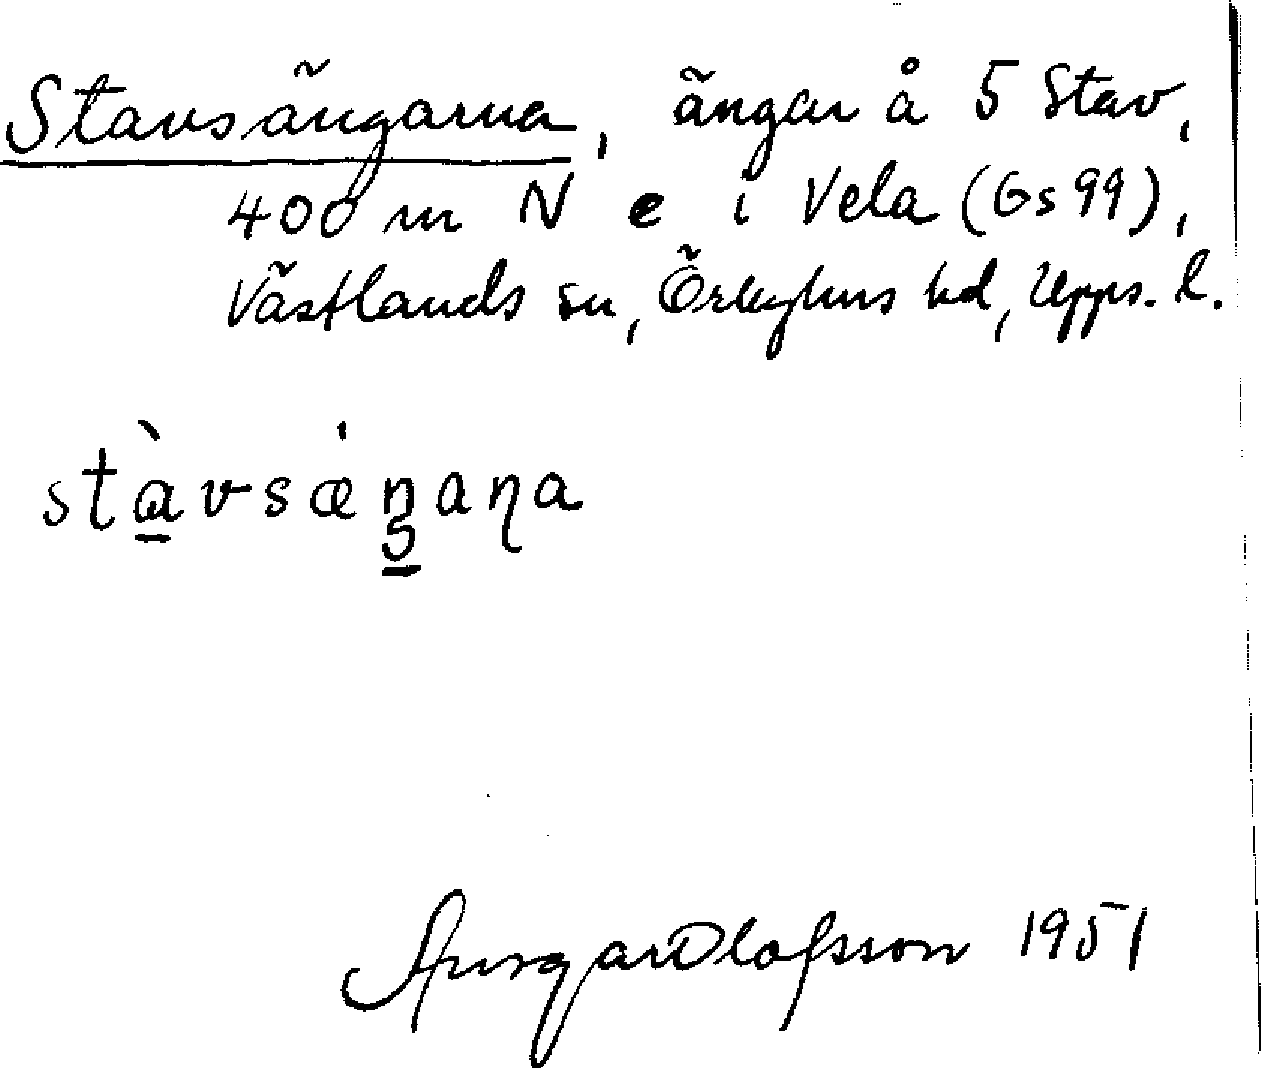 Stavsängarna, ängar å 5 Stav,
400 m N e i Vela (Gs 99),
Västlands sn, Örbyhus hd, Upps. l.
stàvsæŋana
Ansgar Olofsson 1951